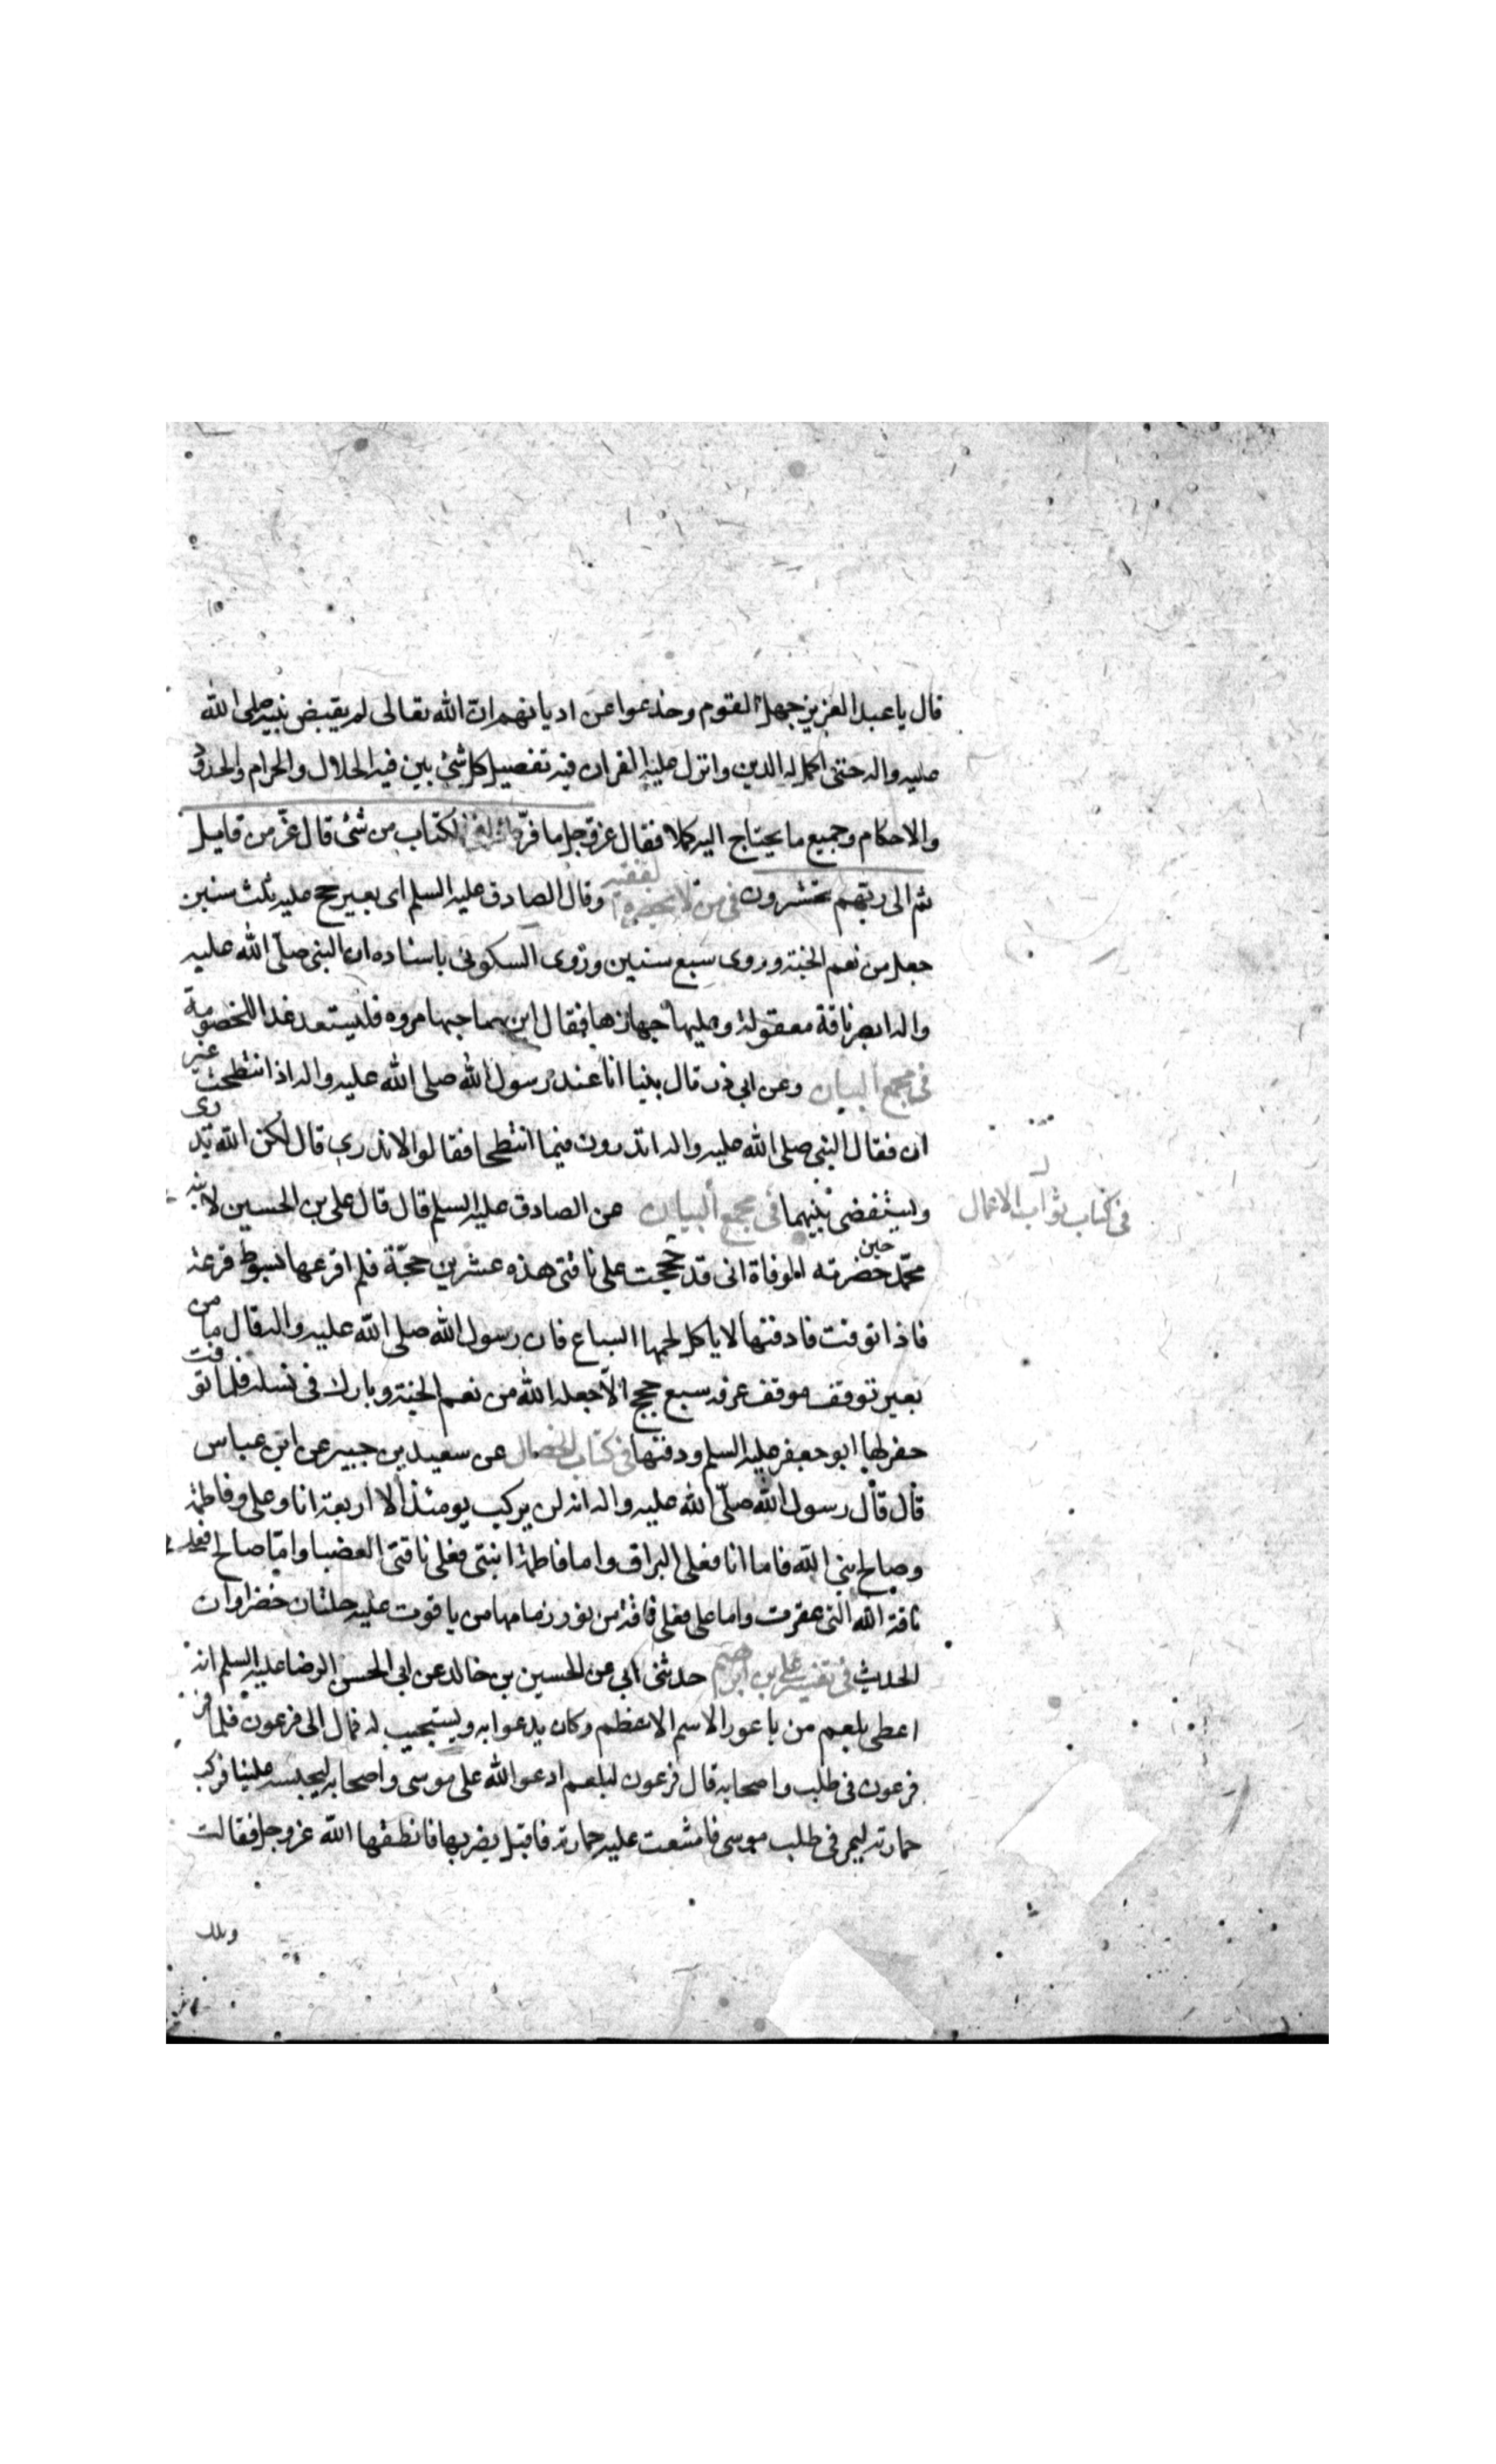 قال يا عبد العزيز جهل القوم وخدعوا عن اديانهم ان الله تعالى لم يقبض نبيه صلى الله
عليه واله حتى اكمل له الدين وانزل عليه القران فيه تفصيل كل شئ بين فيه الحلال والحرام والحدود
والاحكام وجميع ما يحتاج اليه كملا فقال عز وجل ما فرطنا فى الكتاب من شئ قال عز من قايل
ثم الى ربهم يحشرون فى من لا يحضره الفقيه وقال الصادق عليه السلم اى بعير حج عليه ثلث سنين
جعل من نعم الجنة وروى سبع سنين وروى السكونى باسناده ان النبى صلى الله عليه
واله ابصر ناقة معقولة وعليها جهازها فقال اين صاحبها مروه فليستعد غدا للخصومة
فى مجمع البيان وعن ابى ذر قال بينا انا عند رسول الله صلى الله عليه واله اذ انتطحت عنز
ان فقال النبى صلى الله عليه واله اتدرون فيما انتطحا فقالوا لا ندرى قال لكن الله يدرى
وليستقضى بينهما فى مجمع البيان عن الصادق عليه السلم قال قال على بن الحسين لابنه
فى كتاب ثواب الاعمال
محمد حين حضرته الوفاة انى قد حججت على ناقتى هذه عشرين حجة فلم اقرعها بسوط قرعة
فاذا توفت فادفنها لا ياكل لحمها السباع فان رسول الله صلى الله عليه واله قال ما من
بعير توقف موقف عرفه سبع حجج الا جعله الله من نعم الجنة وبارك فى نسله فلما توفت
حفر لها ابو جعفر عليه السلم ودفنها فى كتاب الخصال عن سعيد بن جبير عن ابن عباس
قال قال رسول الله صلى الله عليه واله انه لن يركب يومئذ الا اربعة انا وعلى وفاطمة
وصالح نبى الله فاما انا فعلى البراق واما فاطمة ابنتى فعلى ناقتى العضبا واما صالح فعلى
ناقة الله التى عقرت واما على فعلى ناقة من نور زمامها من ياقوت عليه حلتان خضراوان
الحديث فى تفسير على بن ابراهيم حدثنى ابى عن الحسين بن خالد عن ابى الحسن الرضا عليه السلم انه
اعطى بلعم من باعورا الاسم الاعظم وكان يدعوا به ويستجيب له فمال الى فرعون فلما مر
فرعون فى طلب واصحابه قال فرعون لبلعم ادعو الله على موسى واصحابه ليحبسه علينا فركب
حمارته ليمر فى طلب موسى فامتنعت عليه حمارته فاقبل يضربها فانطقها الله عز وجل فقالت
ويلك